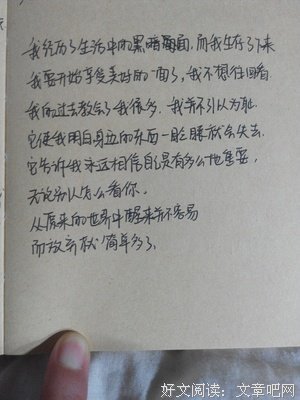 我经历了生活中的黑暗面，而我生存了下来
我要开始享受美好的一面了，我不想往回看
我的过去教会了我很多，我并不引以为耻
它使我明白身边的东西一眨眼就会失去。
它告诉我永远相信自己是有多么地重要，
无论别人怎么看你。
从原来的世界中醒来并不容易
而放弃就简单多了。
好文阅读：文章吧网